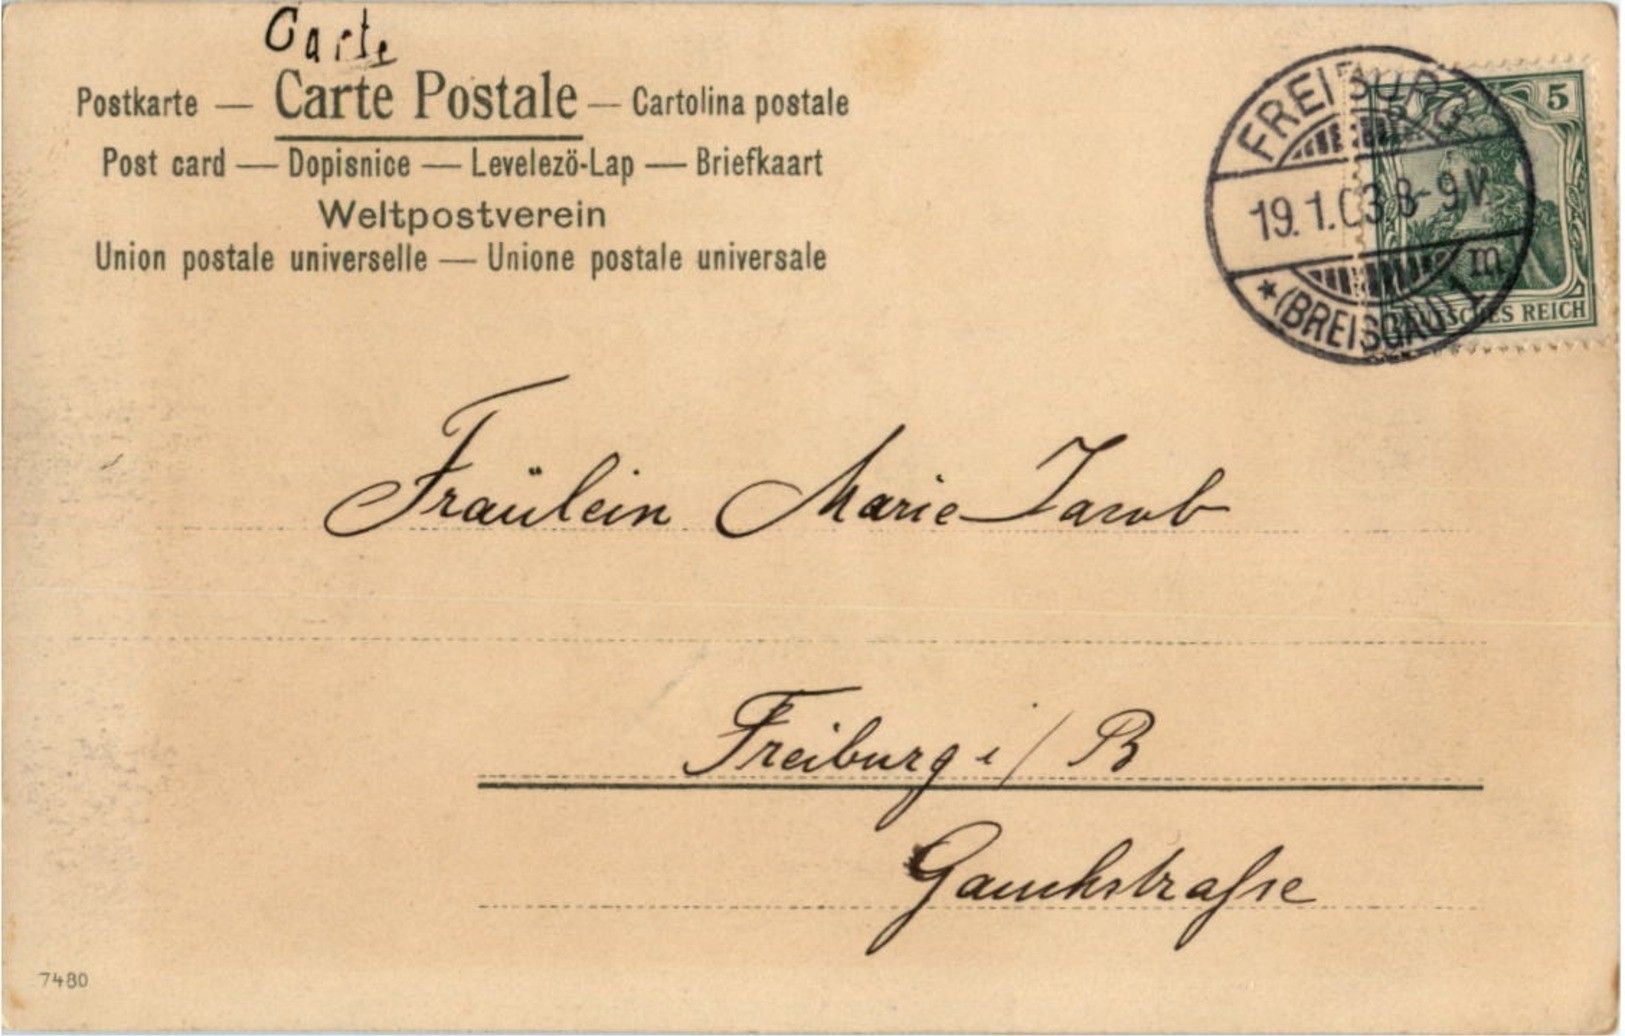 Carte
Postkarte — Carte Postale — Cartolina postale
Post card — Dopisnice — Levelezö-Lap — Briefkaart
Weltpostverein
Union postale universelle — Unione postale universale
FREIBURG
19.1.03.8-9V.
m
*(BREISGAU) 1
5 5
DEUTSCHES REICH
Fräulein Marie Jacob
Freiburg i/B
Gauchstraße
7480